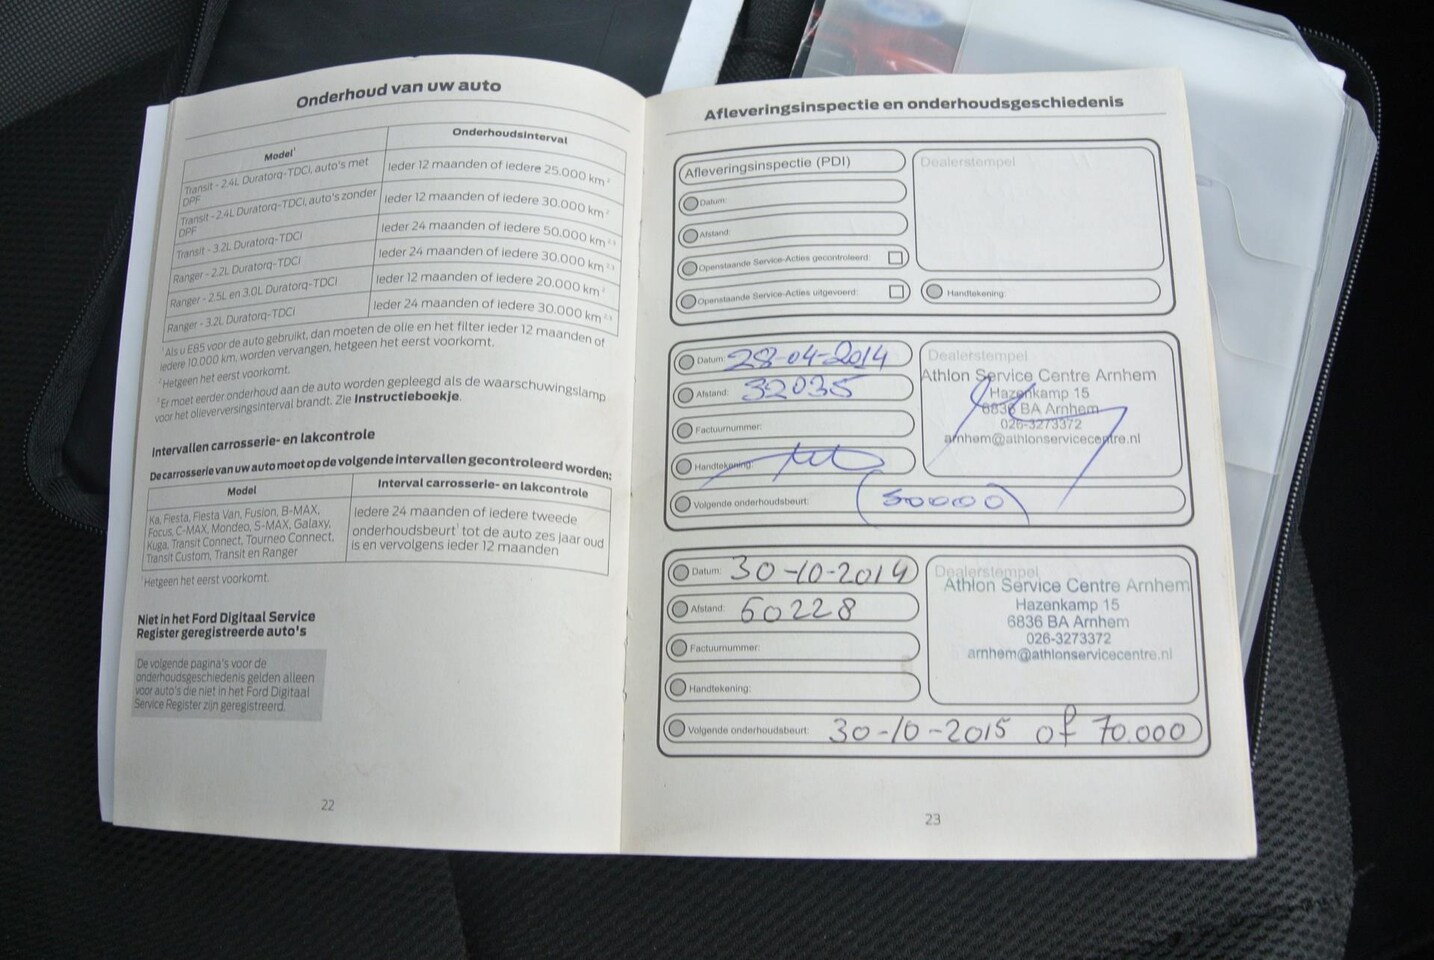 Onderhoud van uw auto
Model¹ Onderhoudsinterval
Transit - 2.4L Duratorq-TDCi, auto's met DPF Ieder 12 maanden of iedere 25.000 km²
Transit - 2.4L Duratorq-TDCi, auto's zonder DPF Ieder 12 maanden of iedere 30.000 km²
Transit - 3.2L Duratorq-TDCi Ieder 24 maanden of iedere 50.000 km²˒³
Ranger - 2.2L Duratorq-TDCi Ieder 24 maanden of iedere 30.000 km²˒³
Ranger - 2.5L en 3.0L Duratorq-TDCi Ieder 12 maanden of iedere 20.000 km²
Ranger - 3.2L Duratorq-TDCi Ieder 24 maanden of iedere 30.000 km²˒³
¹Als u E85 voor de auto gebruikt, dan moeten de olie en het filter ieder 12 maanden of
iedere 10.000 km. worden vervangen, hetgeen het eerst voorkomt.
²Hetgeen het eerst voorkomt.
³Er moet eerder onderhoud aan de auto worden gepleegd als de waarschuwingslamp
voor het olieverversingsinterval brandt. Zie Instructieboekje.
Intervallen carrosserie- en lakcontrole
De carrosserie van uw auto moet op de volgende intervallen gecontroleerd worden:
Model Interval carrosserie- en lakcontrole
Ka, Fiesta, Fiesta Van, Fusion, B-MAX,
Focus, C-MAX, Mondeo, S-MAX, Galaxy,
Kuga, Transit Connect, Tourneo Connect,
Transit Custom, Transit en Ranger
Iedere 24 maanden of iedere tweede
onderhoudsbeurt¹ tot de auto zes jaar oud
is en vervolgens ieder 12 maanden
¹Hetgeen het eerst voorkomt.
Niet in het Ford Digitaal Service
Register geregistreerde auto's
De volgende pagina's voor de
onderhoudsgeschiedenis gelden alleen
voor auto's die niet in het Ford Digitaal
Service Register zijn geregistreerd.
22
Afleveringsinspectie en onderhoudsgeschiedenis
Afleveringsinspectie (PDI)
Dealerstempel
Datum:
Afstand:
Openstaande Service-Acties gecontroleerd:
Openstaande Service-Acties uitgevoerd:
Handtekening:
Datum: 28-04-2014
Afstand: 32035
Factuurnummer:
Handtekening:
Dealerstempel
Athlon Service Centre Arnhem
Hazenkamp 15
6836 BA Arnhem
026-3273372
arnhem@athlonservicecentre.nl
Volgende onderhoudsbeurt: (50000)
Datum: 30-10-2014
Afstand: 50228
Factuurnummer:
Handtekening:
Dealerstempel
Athlon Service Centre Arnhem
Hazenkamp 15
6836 BA Arnhem
026-3273372
arnhem@athlonservicecentre.nl
Volgende onderhoudsbeurt: 30-10-2015 of 70.000
23